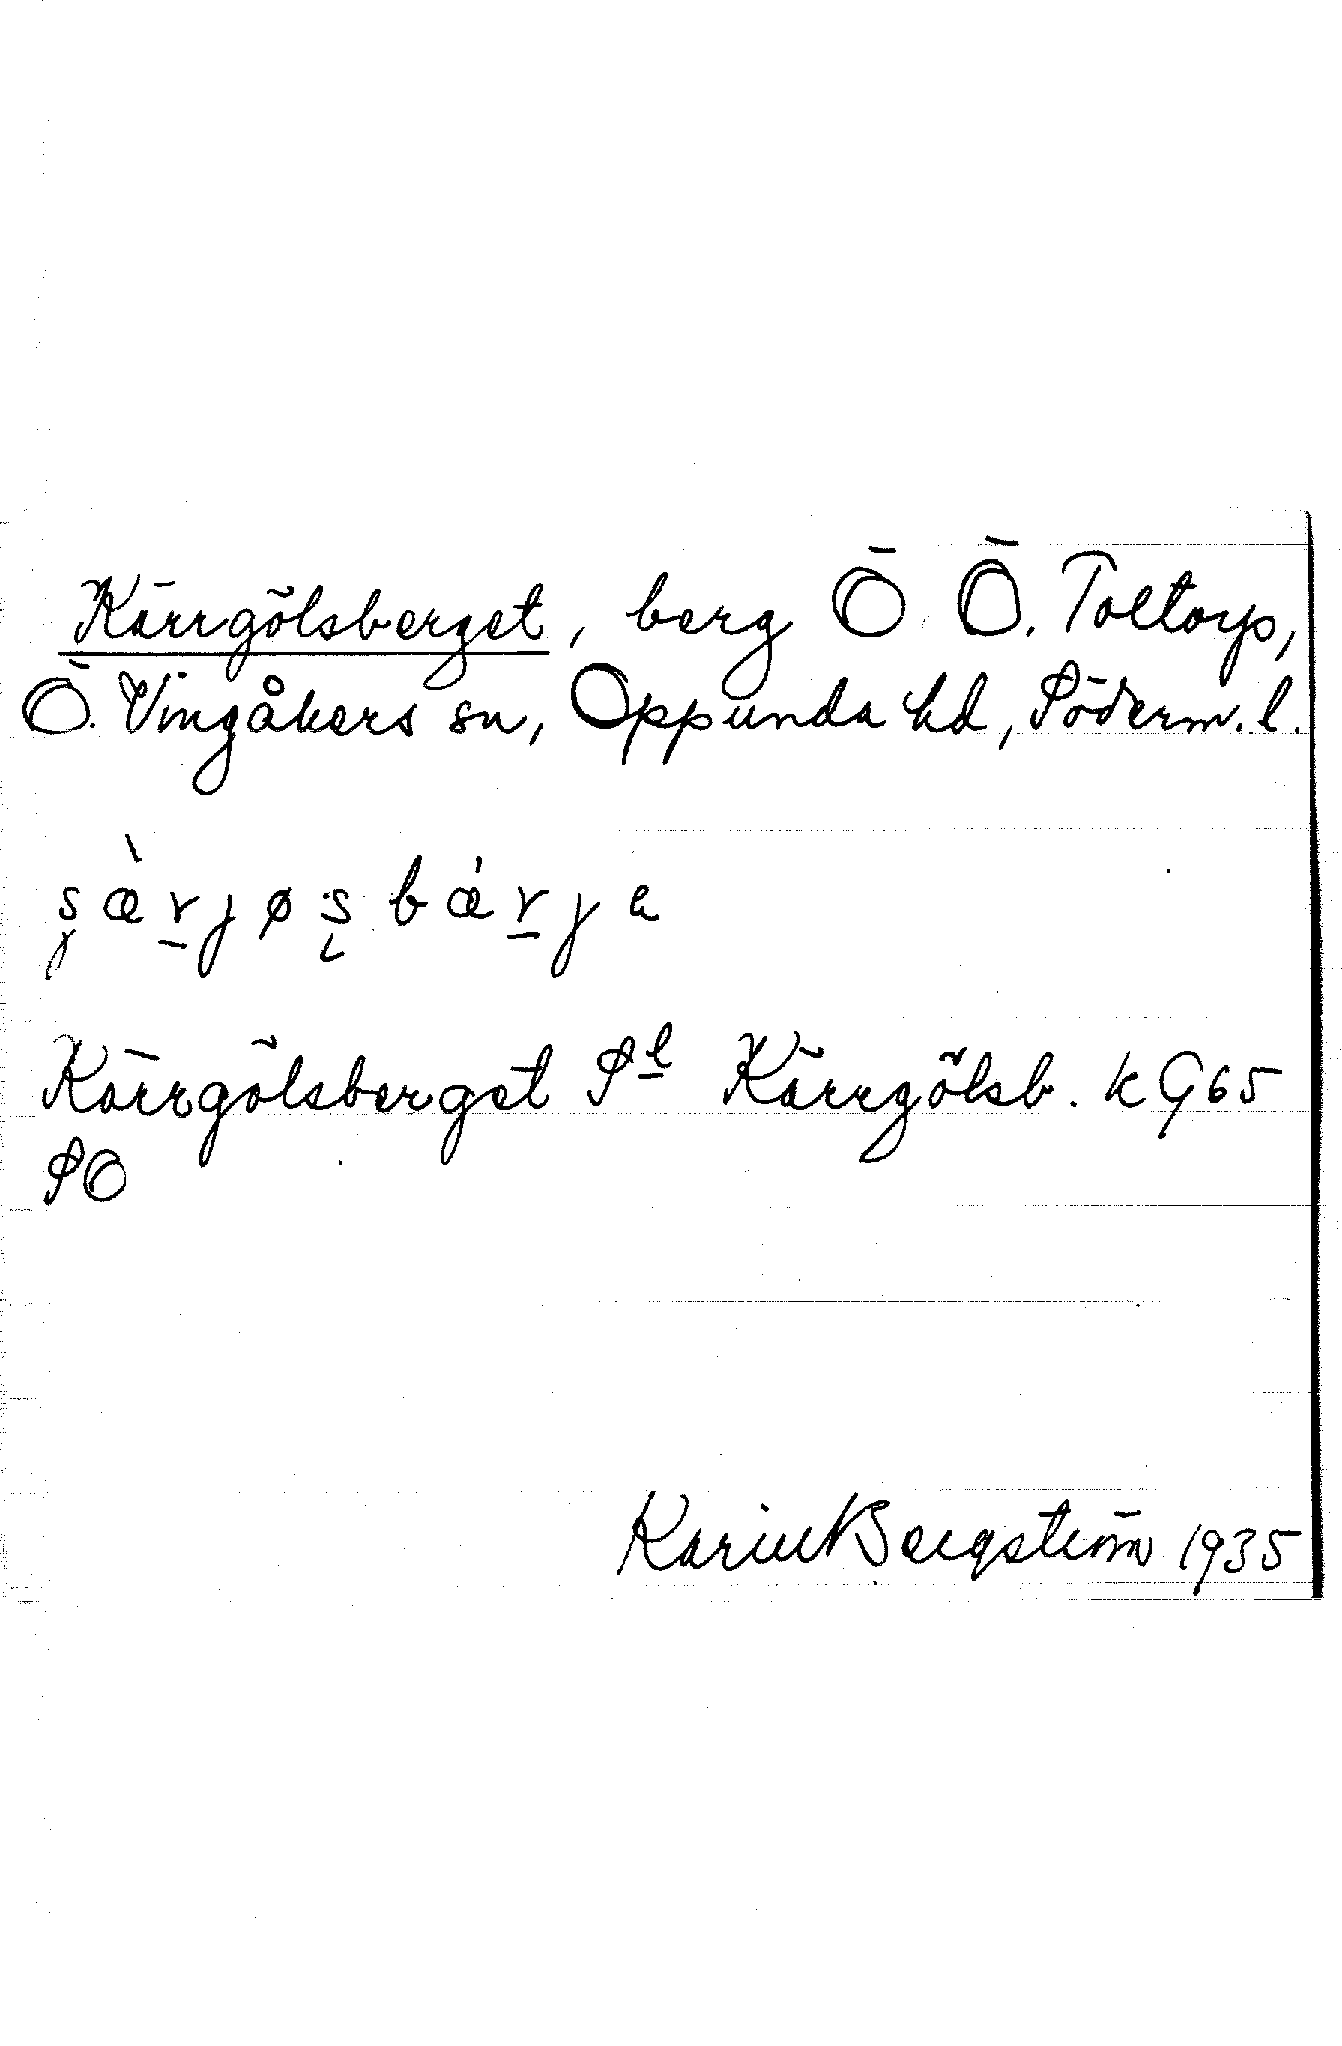 Kärrgölsberget, berg Ö Ö. Toltorp,
Ö. Vingåkers sn, Oppunda hd, Söderm. l.
s̡æ̀r̠jøʂbǽr̠jə
Kärrgölsberget Sl Kärrgölsb. k G65
SO
Karin Bergström 1935